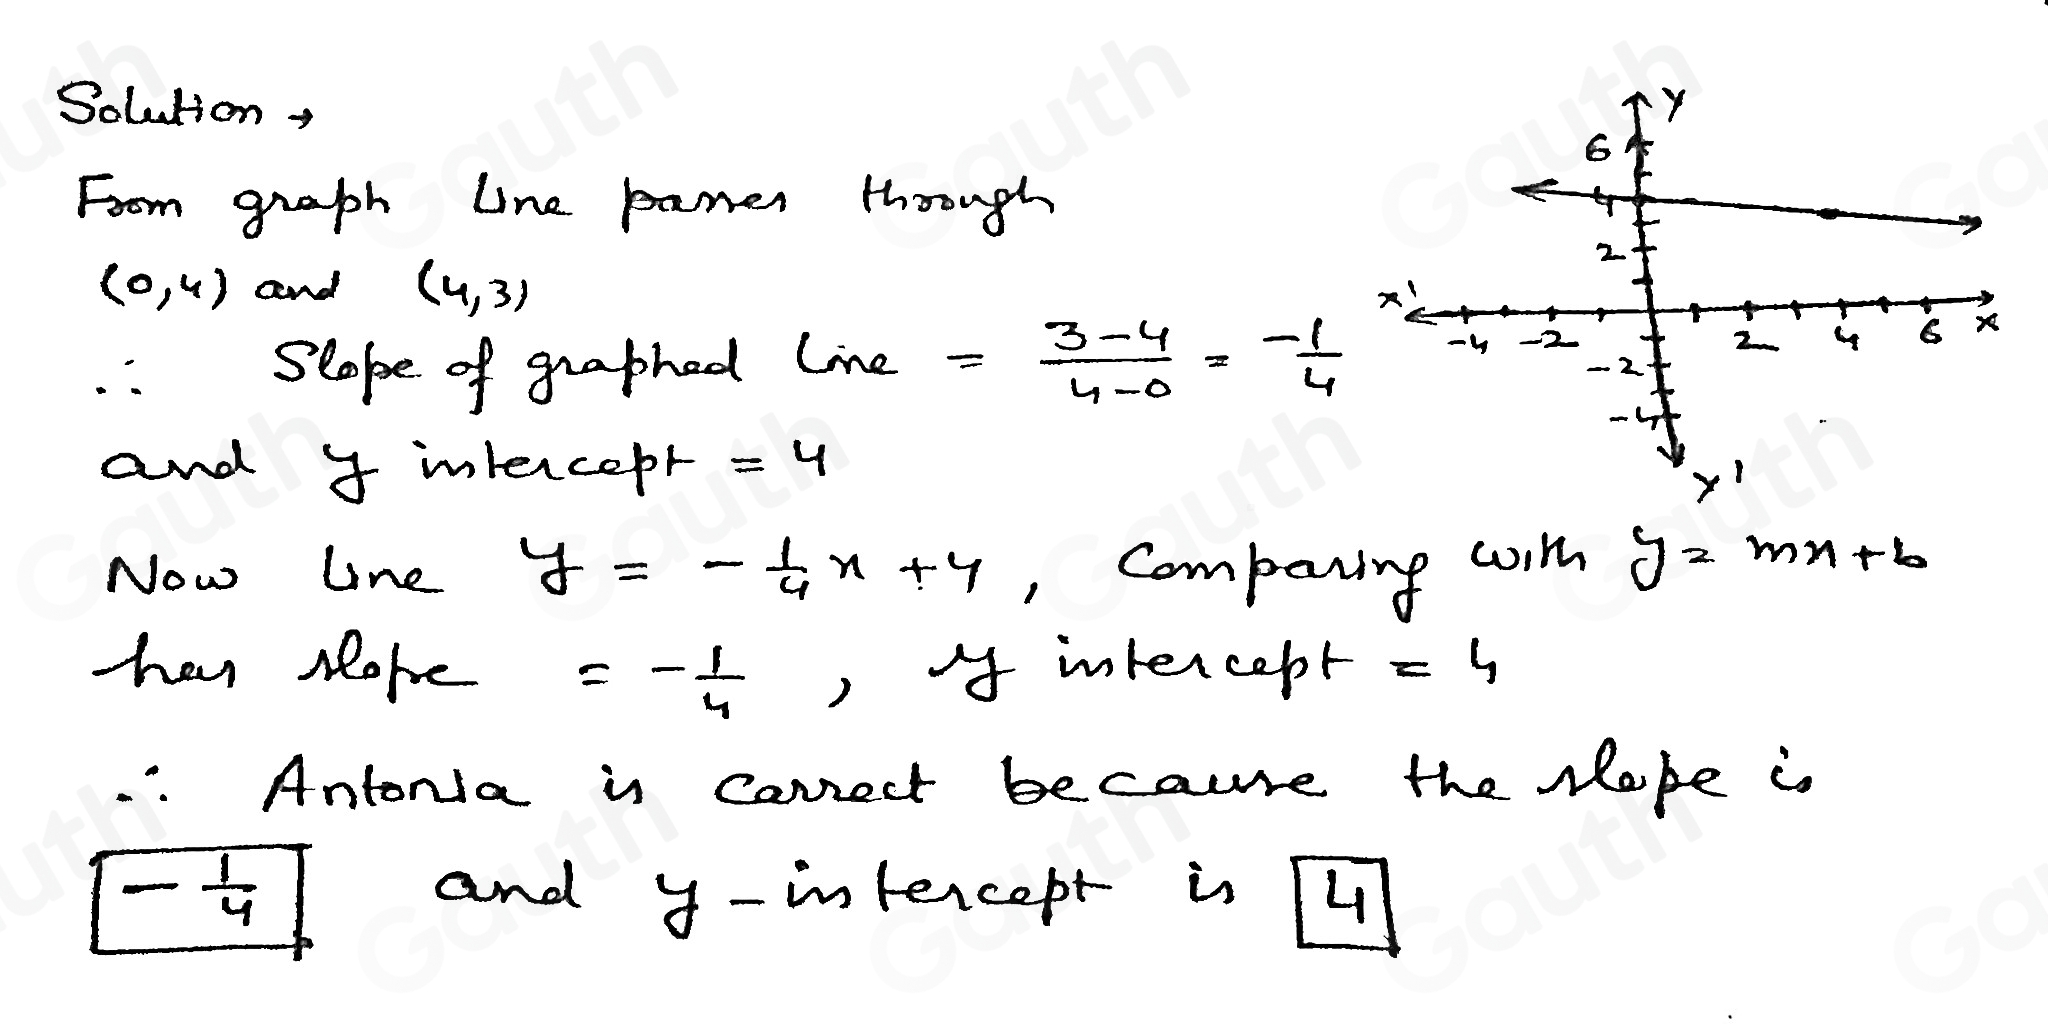 Solution →
From graph line passes through
(0,4) and (4,3)
∴ Slope of graphed line = \frac{3-4}{4-0} = \frac{-1}{4}
and y intercept = 4
Now line y = -\frac{1}{4}x + 4, Comparing with y = mx + b
has slope = -\frac{1}{4}, y intercept = 4
∴ Antonia is correct because the slope is
-\frac{1}{4} and y-intercept is 4
Y
6
4
2
X'
-4 -2 2 4 6 X
-2
-4
Y'
Gauth